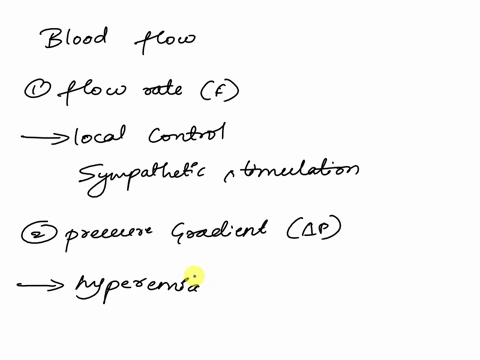 Blood flow
① flow rate (F)
→ local control
Sympathetic stimulation
② pressure Gradient (ΔP)
→ hyperemia